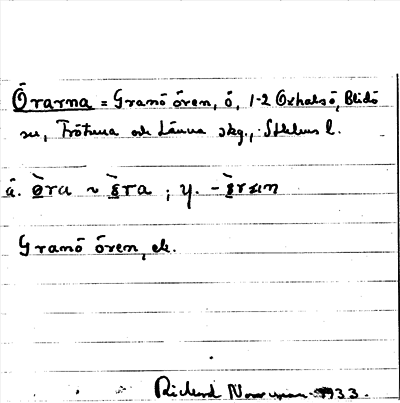 Örarna = Gramö ören, ö, 1-2 Oxhalsö, Blidö
sn, Frötuna och Länna skg., Sthlms l.
ä. øra ~ ɛ̀ra ; y. -
Gramö ören, ek.
Richard 1933.